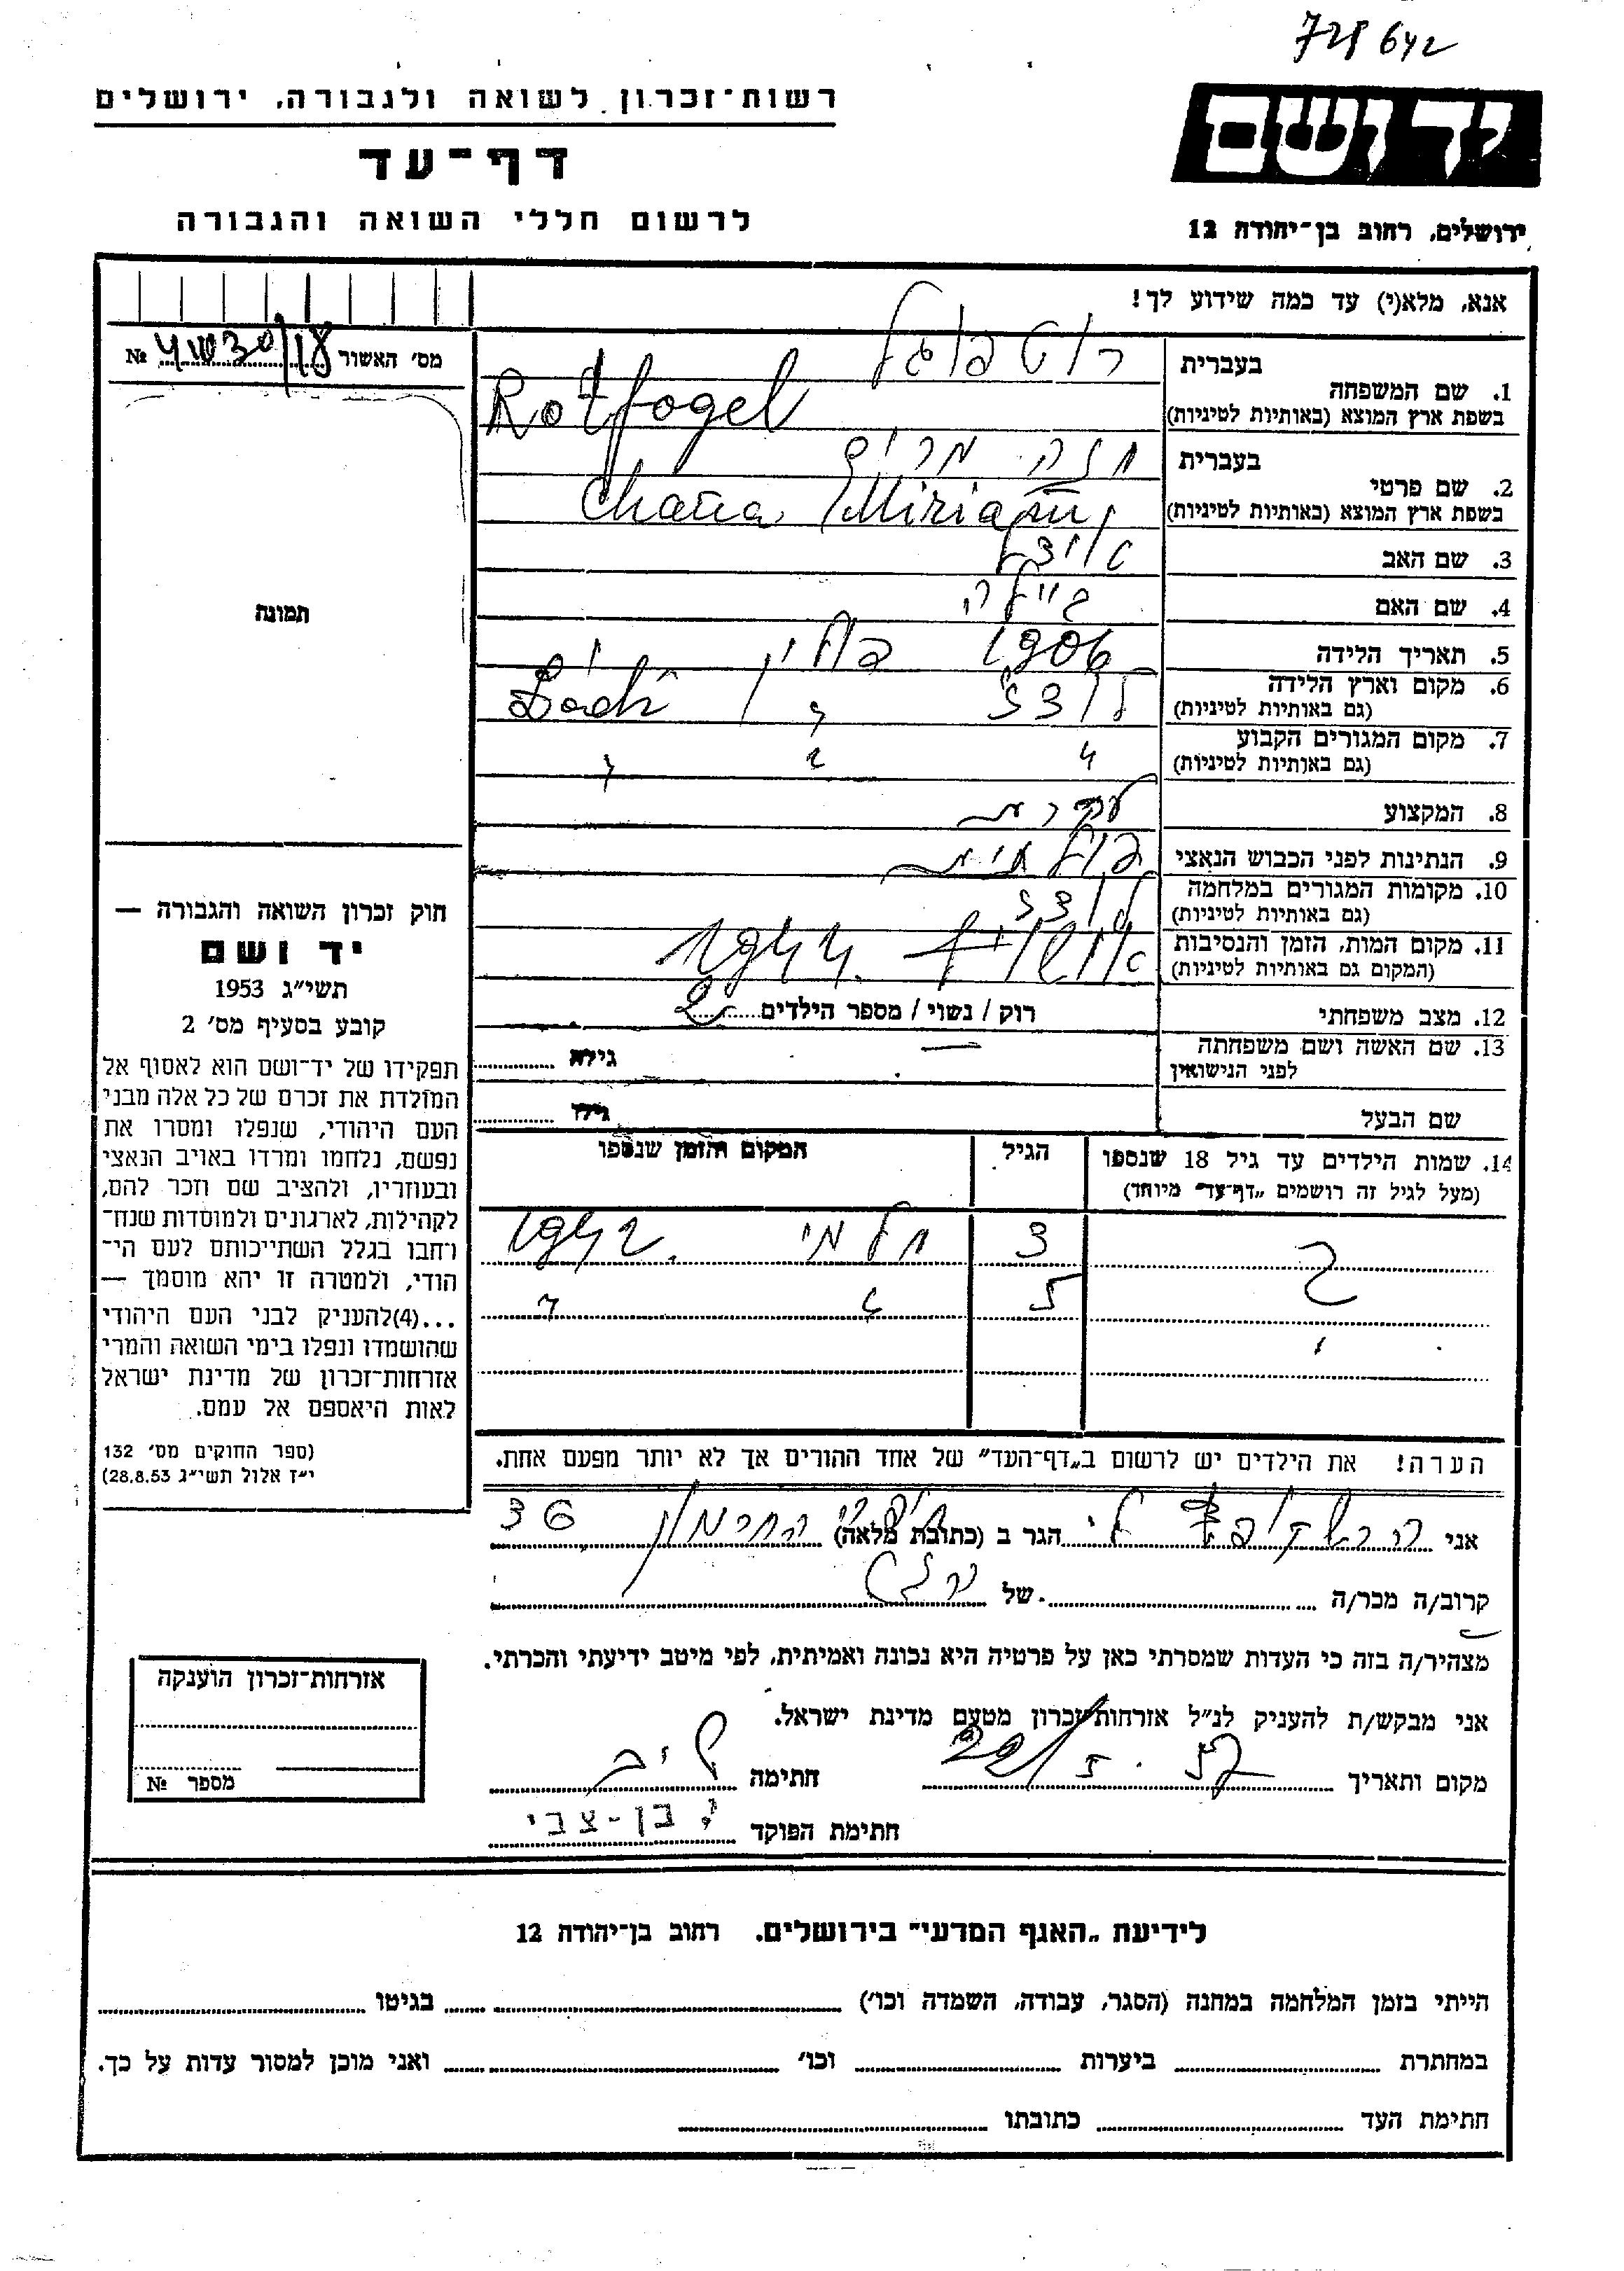 728642
רשות־זכרון לשואה ולגבורה, ירושלים
יד ושם
דף־עד
לרשום חללי השואה והגבורה
ירושלים, רחוב בן־יהודה 12
אנא, מלא(י) עד כמה שידוע לך!
מס' האשור №
בעברית רוטפוגל
1. שם המשפחה
בשפת ארץ המוצא (באותיות לטיניות) Rotfogel
בעברית חנה מרים
2. שם פרטי
בשפת ארץ המוצא (באותיות לטיניות) Chana Miriam
3. שם האב
4. שם האם ביילה
5. תאריך הלידה 1906
6. מקום וארץ הלידה
(גם באותיות לטיניות) לודז' פולין
7. מקום המגורים הקבוע
(גם באותיות לטיניות) " " "
8. המקצוע
9. הנתינות לפני הכבוש הנאצי פולנית
10. מקומות המגורים במלחמה
(גם באותיות לטיניות) לודז'
11. מקום המות, הזמן והנסיבות
(המקום גם באותיות לטיניות) אושויץ 1944.
12. מצב משפחתי רוק / נשוי / מספר הילדים 2
13. שם האשה ושם משפחתה
לפני הנישואין — גילה
שם הבעל גילו
14. שמות הילדים עד גיל 18 שנספו
(מעל לגיל זה רושמים „דף־עד" מיוחד)
הגיל
המקום והזמן שנספו
3 חלמי 1942.
5 " "
הערה! את הילדים יש לרשום ב„דף־העד" של אחד ההורים אך לא יותר מפעם אחת.
תמונה
חוק זכרון השואה והגבורה —
יד ושם
תשי"ג 1953
קובע בסעיף מס' 2
תפקידו של יד־ושם הוא לאסוף אל
המולדת את זכרם של כל אלה מבני
העם היהודי, שנפלו ומסרו את
נפשם, נלחמו ומרדו באויב הנאצי
ובעוזריו, ולהציב שם וזכר להם,
לקהילות, לארגונים ולמוסדות שנח־
רחבו בגלל השתייכותם לעם הי־
הודי, ולמטרה זו יהא מוסמך —
...(4)להעניק לבני העם היהודי
שהושמדו ונפלו בימי השואה והמרי
אזרחות־זכרון של מדינת ישראל
לאות היאספם אל עמם.
(ספר החוקים מס' 132
י"ז אלול תשי"ג 28.8.53)
אני הגר ב (כתובת מלאה) 36
קרוב/ה מכר/ה של
מצהיר/ה בזה כי העדות שמסרתי כאן על פרטיה היא נכונה ואמיתית, לפי מיטב ידיעתי והכרתי.
אני מבקש/ת להעניק לנ"ל אזרחות־זכרון מטעם מדינת ישראל.
מקום ותאריך 22/5.57 חתימה
חתימת הפוקד י. בן-צבי
אזרחות־זכרון הוענקה
מספר №
לידיעת „האגף המדעי" בירושלים. רחוב בן־יהודה 12
הייתי בזמן המלחמה במחנה (הסגר, עבודה, השמדה וכו') בגיטו
במחתרת ביערות וכו' ואני מוכן למסור עדות על כך.
חתימת העד כתובתו